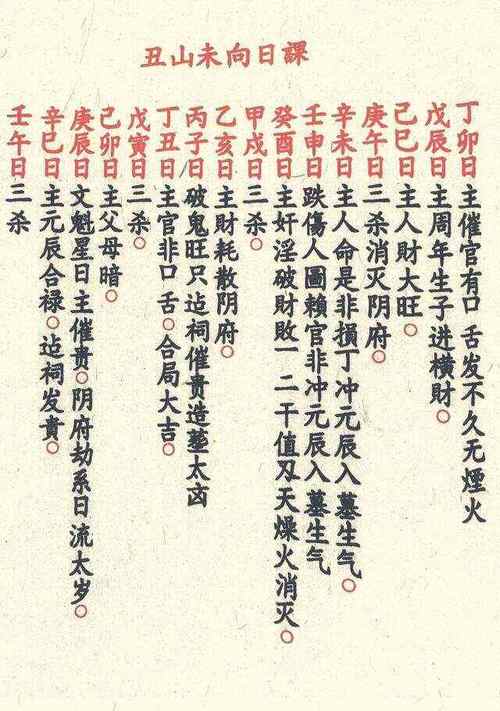 丑山未向日課
丁卯日主催官有口舌发不久无煙火
戊辰日主周年生子进横財○
己巳日主人財大旺○
庚午日三杀消灭阴府○
辛未日主人命是非損丁冲元辰入墓生气○
壬申日跌傷人圖賴官非冲元辰入墓生气
癸酉日主奸淫破財敗一二干值刄天燥火消灭○
甲戌日三杀○
乙亥日主財耗散阴府○
丙子日破鬼旺只迠祠催贵造塟太凶
丁丑日主官非口舌○合局大吉○
戊寅日三杀○
己卯日主父母暗○
庚辰日文魁星日主催贵○阴府劫系日流太岁○
辛巳日主元辰合禄○迠祠发貴○
壬午日三杀